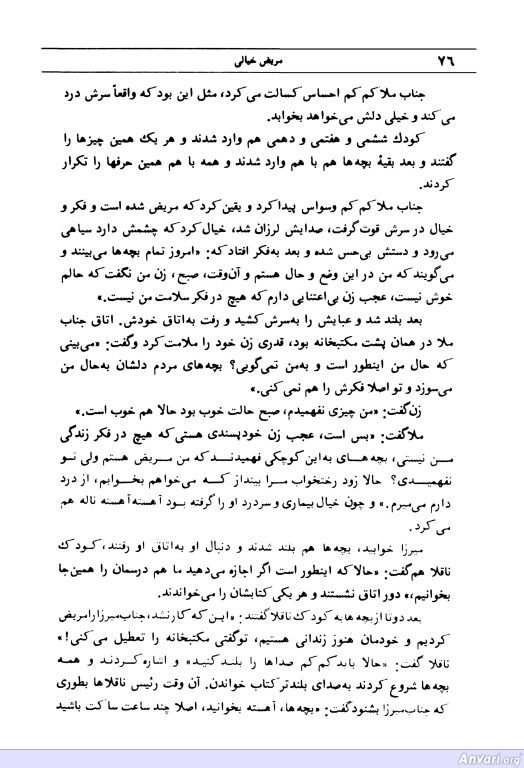 ۷۶ مریض خیالی
جناب ملا کم کم احساس کسالت می‌کرد، مثل این بود که واقعاً سرش درد
می‌کند و خیلی دلش می‌خواهد بخوابد.
کودک ششمی و هفتمی و دهمی هم وارد شدند و هر یک همین چیزها را
گفتند و بعد بقیهٔ بچه‌ها هم با هم وارد شدند و همه با هم همین حرفها را تکرار
کردند.
جناب ملا کم کم وسواس پیدا کرد و یقین کرد که مریض شده است و فکر و
خیال در سرش قوت گرفت، صدایش لرزان شد، خیال کرد که چشمش دارد سیاهی
می‌رود و دستش بی‌حس شده و بعد به‌فکر افتاد که: «امروز تمام بچه‌ها می‌بینند و
می‌گویند که من در این وضع و حال هستم و آن‌وقت، صبح، زن من نگفت که حالم
خوش نیست، عجب زن بی‌اعتنایی دارم که هیچ در فکر سلامت من نیست.»
بعد بلند شد و عبایش را به‌سرش کشید و رفت به‌اتاق خودش. اتاق جناب
ملا در همان پشت مکتبخانه بود، قدری زن خود را ملامت کرد و گفت: «می‌بینی
که حال من اینطور است و به‌من نمی‌گویی؟ بچه‌های مردم دلشان به‌حال من
می‌سوزد و تو اصلا فکرش را هم نمی‌کنی.»
زن گفت: «من چیزی نفهمیدم، صبح حالت خوب بود حالا هم خوب است.»
ملا گفت: «بس است، عجب زن خودپسندی هستی که هیچ در فکر زندگی
من نیستی، بچه‌های به‌این کوچکی فهمیدند که من مریض هستم ولی تو
نفهمیدی؟ حالا زود رختخواب مرا بینداز که می‌خواهم بخوابم، از درد
دارم می‌میرم.» و چون خیال بیماری و سردرد او را گرفته بود آهسته‌آهسته ناله هم
می‌کرد.
میرزا خوابید، بچه‌ها هم بلند شدند و دنبال او به‌اتاق او رفتند، کودک
ناقلا هم گفت: «حالا که اینطور است اگر اجازه می‌دهید ما هم درسمان را همین‌جا
بخوانیم،» دور اتاق نشستند و هر یکی کتابشان را می‌خواندند.
بعد دوتا از بچه‌ها به کودک ناقلا گفتند: «این که کار نشد، جناب میرزا را مریض
کردیم و خودمان هنوز زندانی هستیم، تو گفتی مکتبخانه را تعطیل می‌کنی!»
ناقلا گفت: «حالا باید کم کم صداها را بلند کنید» و اشاره کردند و همه
بچه‌ها شروع کردند به‌صدای بلندتر کتاب خواندن. آن وقت رئیس ناقلاها بطوری
که جناب میرزا بشنود گفت: «بچه‌ها، آهسته بخوانید، اصلا چند ساعت ساکت باشید
Anvari.org